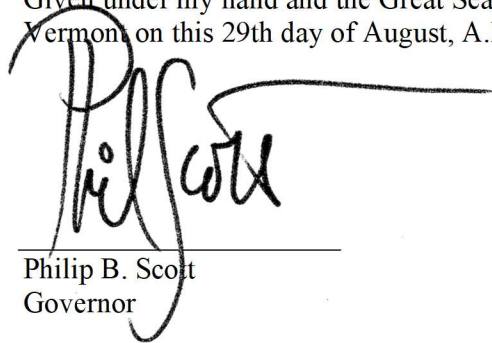 Given under my hand and the Great Sea
Vermont on this 29th day of August, A.
Phil Scott
Philip B. Scott
Governor